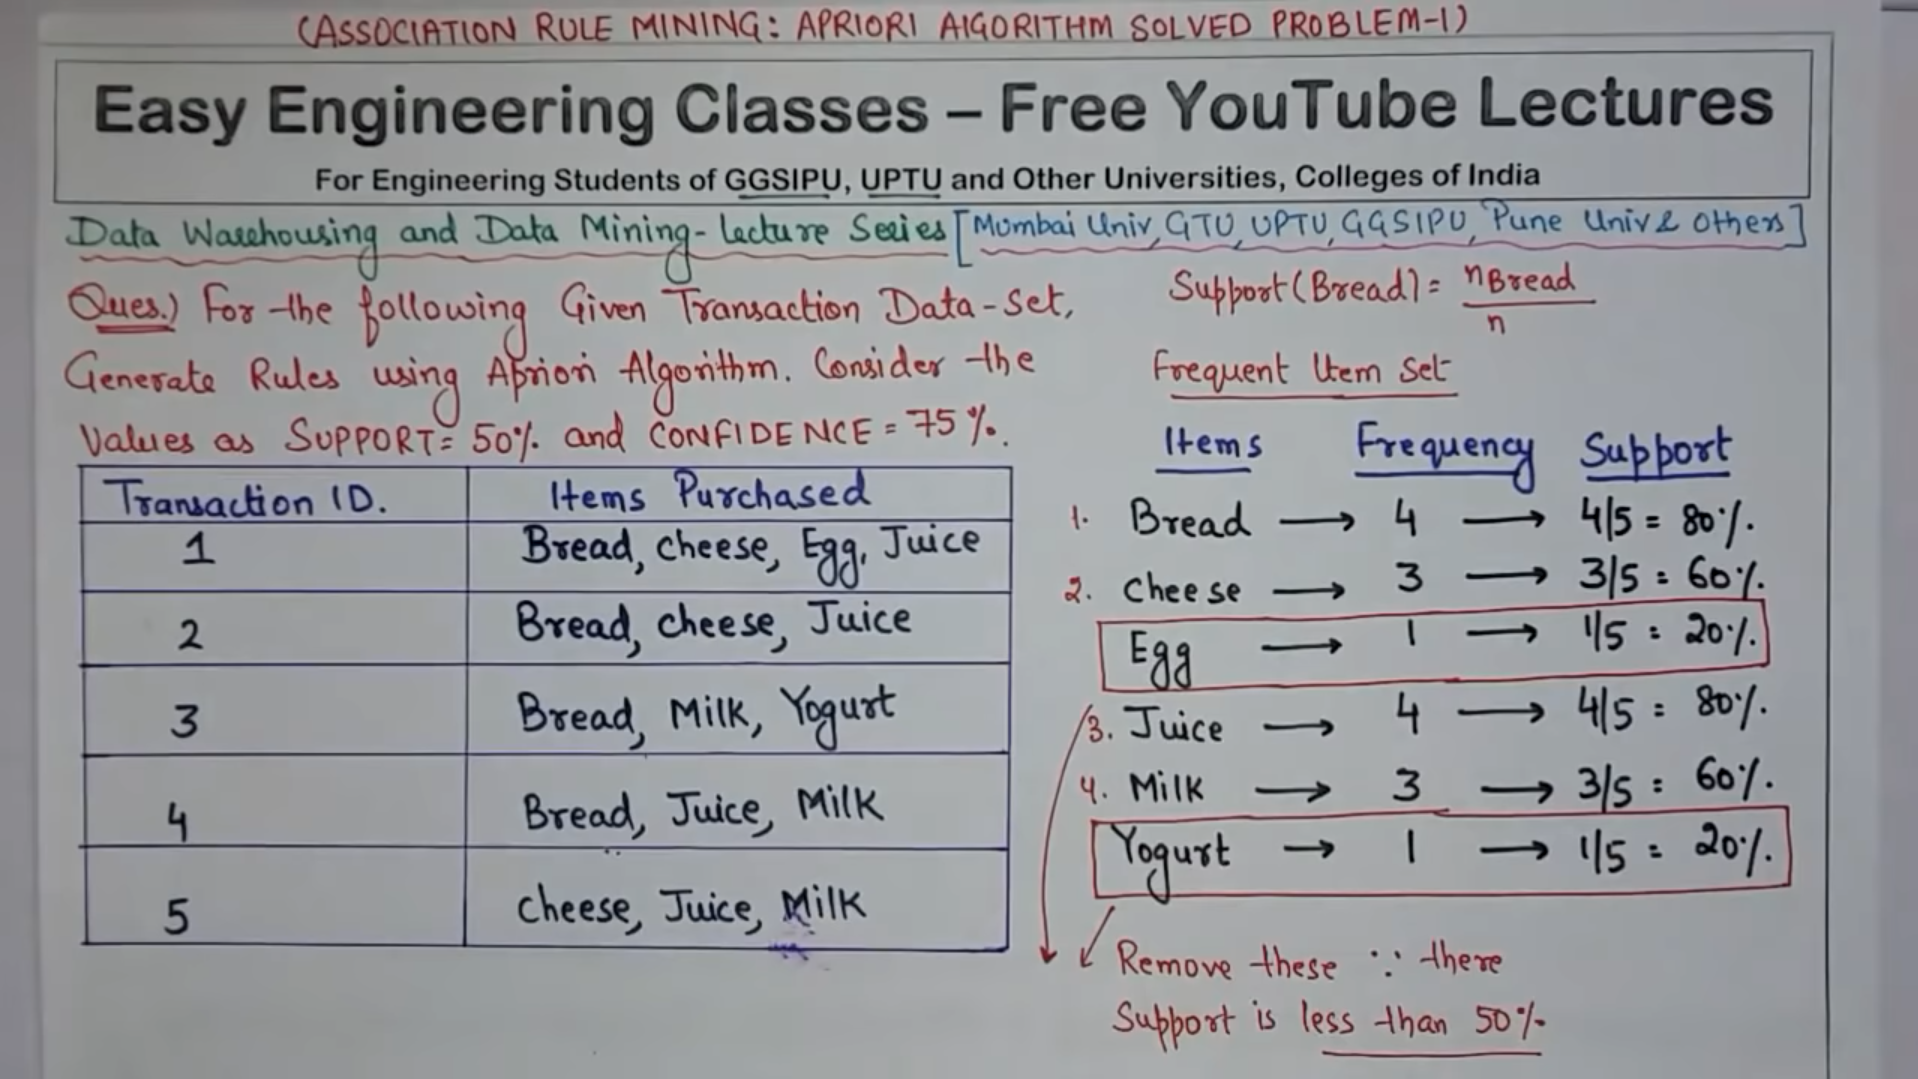 (ASSOCIATION RULE MINING: APRIORI ALGORITHM SOLVED PROBLEM-1)
Easy Engineering Classes – Free YouTube Lectures
For Engineering Students of GGSIPU, UPTU and Other Universities, Colleges of India
Data Warehousing and Data Mining- Lecture Series [Mumbai Univ, GTU, UPTU, GGSIPU, Pune Univ & Others]
Ques.) For the following Given Transaction Data-Set,
Generate Rules using Apriori Algorithm. Consider the
Values as SUPPORT= 50% and CONFIDENCE = 75%.
Transaction ID. Items Purchased
1 Bread, Cheese, Egg, Juice
2 Bread, Cheese, Juice
3 Bread, Milk, Yogurt
4 Bread, Juice, Milk
5 Cheese, Juice, Milk
Support(Bread) = nBread
n
Frequent Item Set
Items Frequency Support
1. Bread → 4 → 4/5 = 80%.
2. Cheese → 3 → 3/5 = 60%.
Egg → 1 → 1/5 = 20%.
3. Juice → 4 → 4/5 = 80%.
4. Milk → 3 → 3/5 = 60%.
Yogurt → 1 → 1/5 = 20%.
Remove these ∵ there
Support is less than 50%